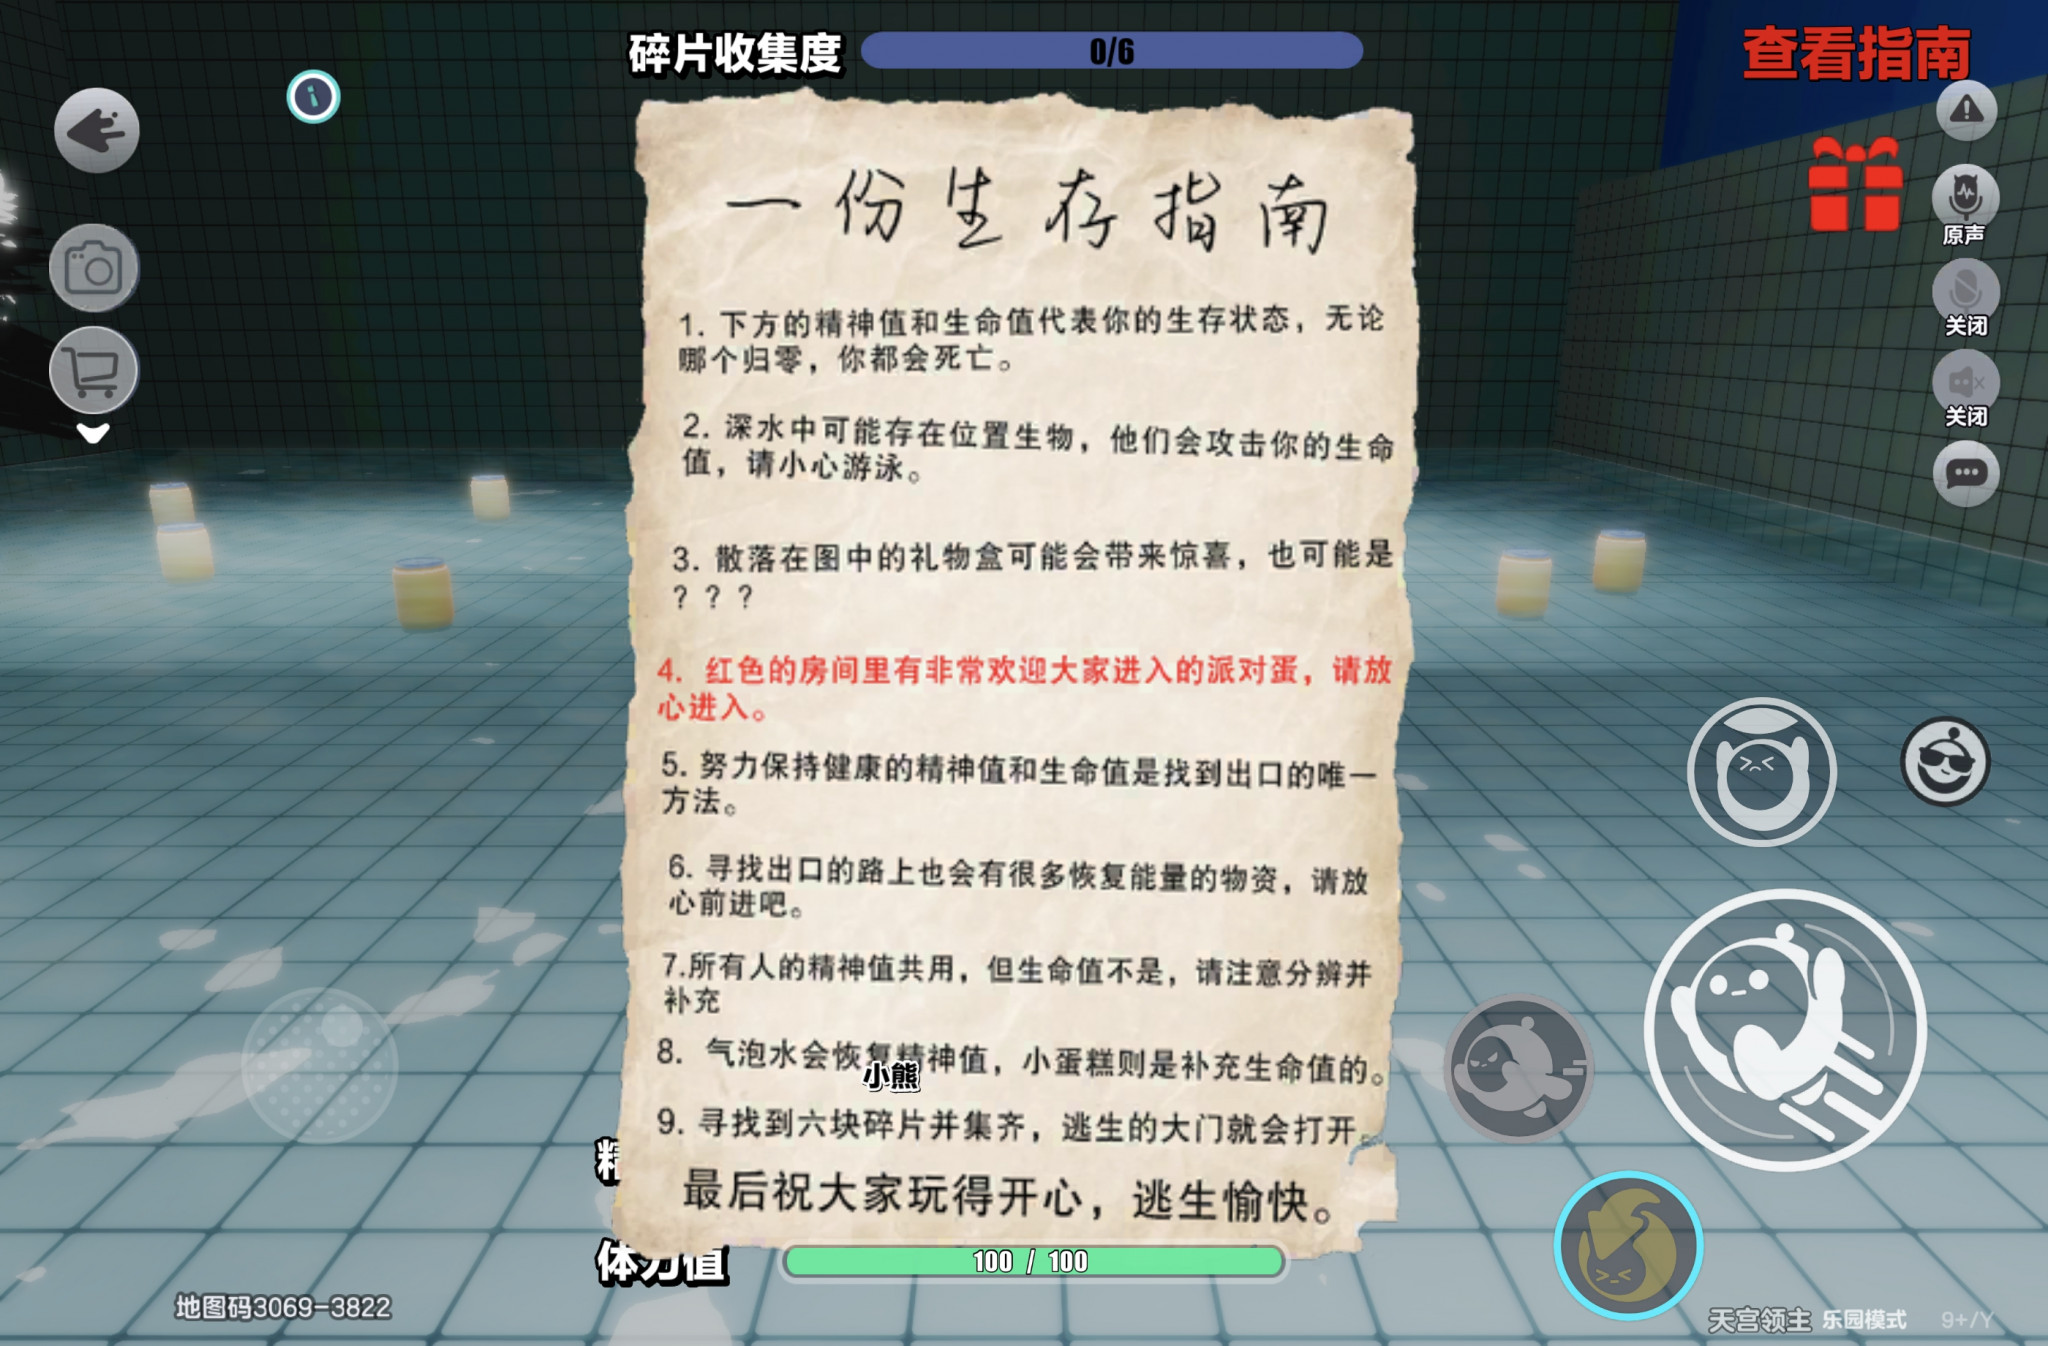 碎片收集度 0/6
查看指南
原声
关闭
关闭
一份生存指南
1. 下方的精神值和生命值代表你的生存状态，无论
哪个归零，你都会死亡。
2. 深水中可能存在位置生物，他们会攻击你的生命
值，请小心游泳。
3. 散落在图中的礼物盒可能会带来惊喜，也可能是
？？？
4. 红色的房间里有非常欢迎大家进入的派对蛋，请放
心进入。
5. 努力保持健康的精神值和生命值是找到出口的唯一
方法。
6. 寻找出口的路上也会有很多恢复能量的物资，请放
心前进吧。
7.所有人的精神值共用，但生命值不是，请注意分辨并
补充
8. 气泡水会恢复精神值，小蛋糕则是补充生命值的。
小熊
9. 寻找到六块碎片并集齐，逃生的大门就会打开。
最后祝大家玩得开心，逃生愉快。
精
体力值 100 / 100
地图码3069-3822
天宫领主 乐园模式 9+/Y